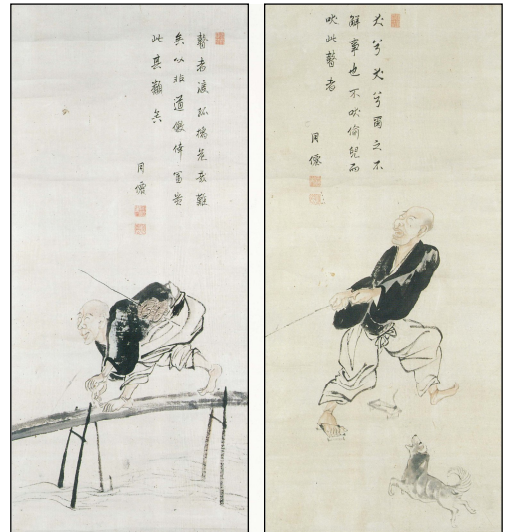 犬兮犬兮爾之不
解事也不吠偸兒而
吠此瞽者
月僊
瞽者渡孤橋危哉難
矣以非道儌倖富貴
此其類矣
月僊